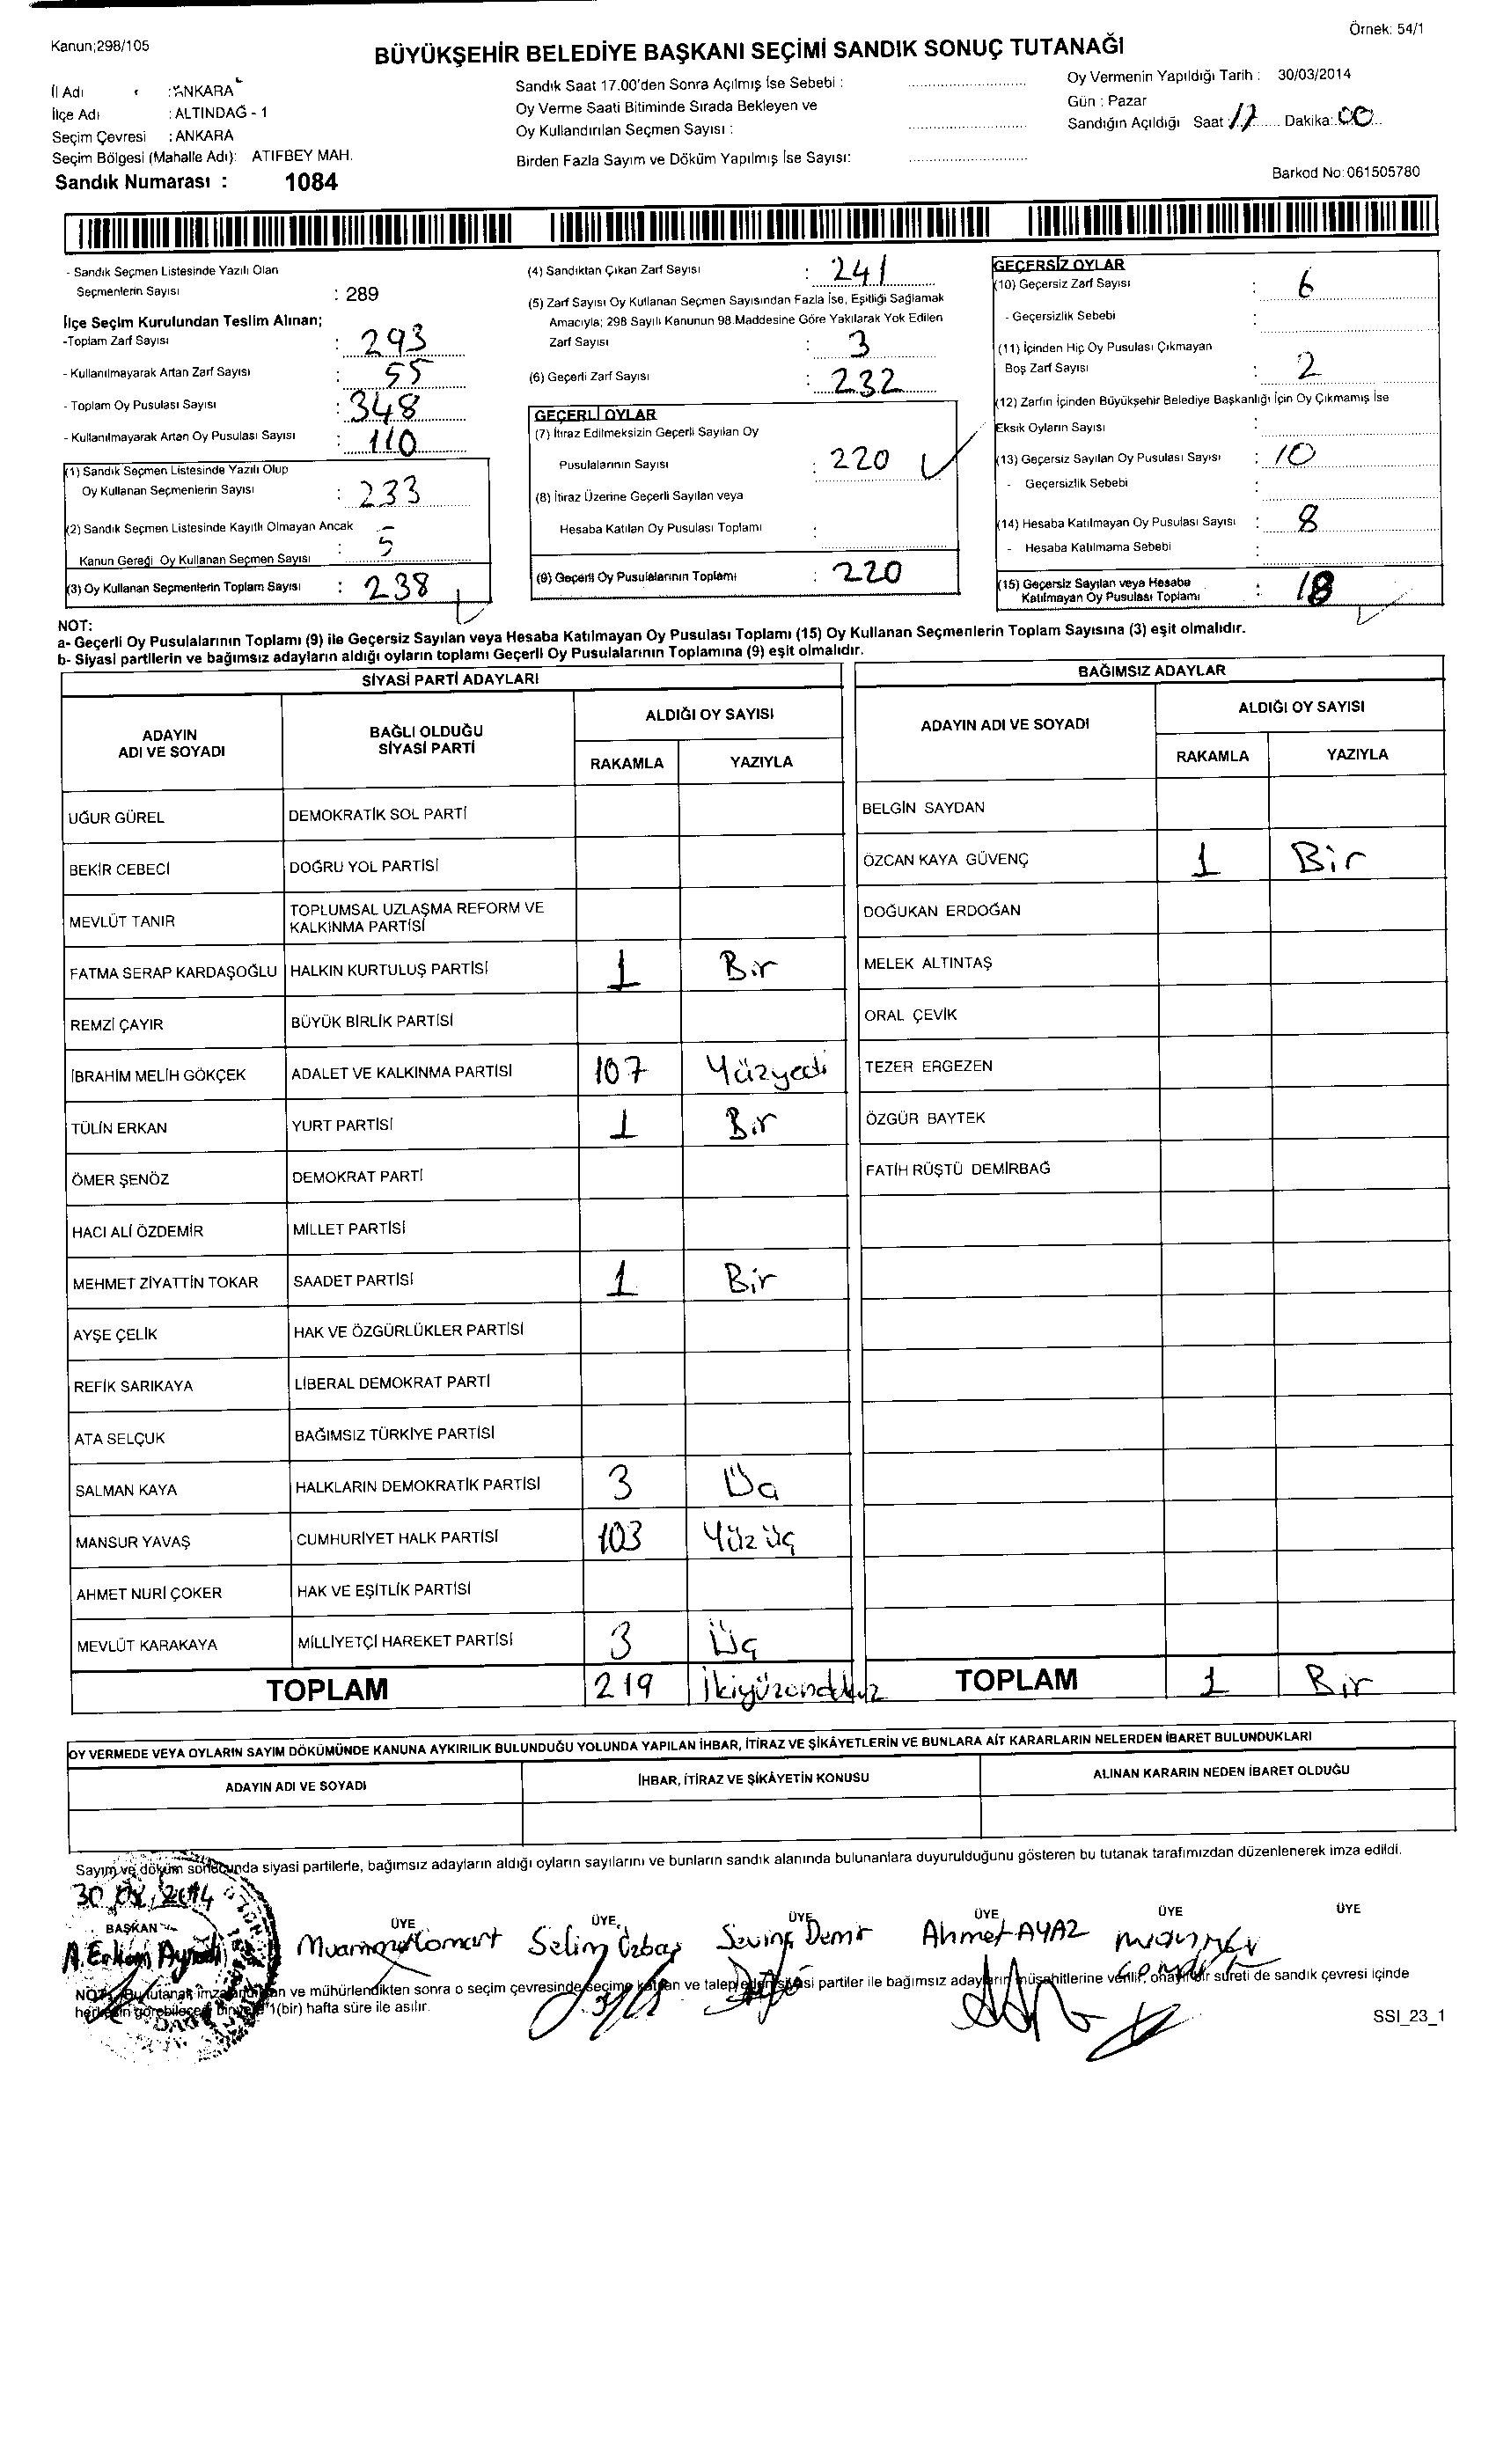 Kanun;298/105
Örnek: 54/1
BÜYÜKŞEHİR BELEDİYE BAŞKANI SEÇİMİ SANDIK SONUÇ TUTANAĞI
İl Adı : ANKARA
İlçe Adı : ALTINDAĞ - 1
Seçim Çevresi : ANKARA
Seçim Bölgesi (Mahalle Adı): ATIFBEY MAH.
Sandık Numarası : 1084
Sandık Saat 17.00'den Sonra Açılmış İse Sebebi :
Oy Verme Saati Bitiminde Sırada Bekleyen ve
Oy Kullandırılan Seçmen Sayısı :
Birden Fazla Sayım ve Döküm Yapılmış İse Sayısı:
Oy Vermenin Yapıldığı Tarih : 30/03/2014
Gün : Pazar
Sandığın Açıldığı Saat : 17 Dakika: 00
Barkod No:061505780
- Sandık Seçmen Listesinde Yazılı Olan
Seçmenlerin Sayısı : 289
İlçe Seçim Kurulundan Teslim Alınan;
-Toplam Zarf Sayısı : 293
- Kullanılmayarak Artan Zarf Sayısı : 55
- Toplam Oy Pusulası Sayısı : 348
- Kullanılmayarak Artan Oy Pusulası Sayısı : 110
(1) Sandık Seçmen Listesinde Yazılı Olup
Oy Kullanan Seçmenlerin Sayısı : 233
(2) Sandık Seçmen Listesinde Kayıtlı Olmayan Ancak
Kanun Gereği Oy Kullanan Seçmen Sayısı : 5
(3) Oy Kullanan Seçmenlerin Toplam Sayısı : 238
(4) Sandıktan Çıkan Zarf Sayısı : 241
(5) Zarf Sayısı Oy Kullanan Seçmen Sayısından Fazla İse, Eşitliği Sağlamak
Amacıyla; 298 Sayılı Kanunun 98.Maddesine Göre Yakılarak Yok Edilen
Zarf Sayısı : 3
(6) Geçerli Zarf Sayısı : 232
GEÇERLİ OYLAR
(7) İtiraz Edilmeksizin Geçerli Sayılan Oy
Pusulalarının Sayısı : 220
(8) İtiraz Üzerine Geçerli Sayılan veya
Hesaba Katılan Oy Pusulası Toplamı :
(9) Geçerli Oy Pusulalarının Toplamı : 220
GEÇERSİZ OYLAR
(10) Geçersiz Zarf Sayısı : 6
- Geçersizlik Sebebi :
(11) İçinden Hiç Oy Pusulası Çıkmayan
Boş Zarf Sayısı : 2
(12) Zarfın İçinden Büyükşehir Belediye Başkanlığı İçin Oy Çıkmamış İse
Eksik Oyların Sayısı :
(13) Geçersiz Sayılan Oy Pusulası Sayısı : 10
- Geçersizlik Sebebi :
(14) Hesaba Katılmayan Oy Pusulası Sayısı : 8
- Hesaba Katılmama Sebebi :
(15) Geçersiz Sayılan veya Hesaba
Katılmayan Oy Pusulası Toplamı : 18
NOT:
a- Geçerli Oy Pusulalarının Toplamı (9) ile Geçersiz Sayılan veya Hesaba Katılmayan Oy Pusulası Toplamı (15) Oy Kullanan Seçmenlerin Toplam Sayısına (3) eşit olmalıdır.
b- Siyasi partilerin ve bağımsız adayların aldığı oyların toplamı Geçerli Oy Pusulalarının Toplamına (9) eşit olmalıdır.
SİYASİ PARTİ ADAYLARI
ADAYIN
ADI VE SOYADI
BAĞLI OLDUĞU
SİYASİ PARTİ
ALDIĞI OY SAYISI
RAKAMLA YAZIYLA
UĞUR GÜREL DEMOKRATİK SOL PARTİ
BEKİR CEBECİ DOĞRU YOL PARTİSİ
MEVLÜT TANIR TOPLUMSAL UZLAŞMA REFORM VE
KALKINMA PARTİSİ
FATMA SERAP KARDAŞOĞLU HALKIN KURTULUŞ PARTİSİ 1 Bir
REMZİ ÇAYIR BÜYÜK BİRLİK PARTİSİ
İBRAHİM MELİH GÖKÇEK ADALET VE KALKINMA PARTİSİ 107 Yüzyedi
TÜLİN ERKAN YURT PARTİSİ 1 Bir
ÖMER ŞENÖZ DEMOKRAT PARTİ
HACI ALİ ÖZDEMİR MİLLET PARTİSİ
MEHMET ZİYATTİN TOKAR SAADET PARTİSİ 1 Bir
AYŞE ÇELİK HAK VE ÖZGÜRLÜKLER PARTİSİ
REFİK SARIKAYA LİBERAL DEMOKRAT PARTİ
ATA SELÇUK BAĞIMSIZ TÜRKİYE PARTİSİ
SALMAN KAYA HALKLARIN DEMOKRATİK PARTİSİ 3 Üç
MANSUR YAVAŞ CUMHURİYET HALK PARTİSİ 103 Yüz üç
AHMET NURİ ÇOKER HAK VE EŞİTLİK PARTİSİ
MEVLÜT KARAKAYA MİLLİYETÇİ HAREKET PARTİSİ 3 Üç
TOPLAM 219 İkiyüzondokuz
BAĞIMSIZ ADAYLAR
ADAYIN ADI VE SOYADI
ALDIĞI OY SAYISI
RAKAMLA YAZIYLA
BELGİN SAYDAN
ÖZCAN KAYA GÜVENÇ 1 Bir
DOĞUKAN ERDOĞAN
MELEK ALTINTAŞ
ORAL ÇEVİK
TEZER ERGEZEN
ÖZGÜR BAYTEK
FATİH RÜŞTÜ DEMİRBAĞ
TOPLAM 1 Bir
OY VERMEDE VEYA OYLARIN SAYIM DÖKÜMÜNDE KANUNA AYKIRILIK BULUNDUĞU YOLUNDA YAPILAN İHBAR, İTİRAZ VE ŞİKÂYETLERİN VE BUNLARA AİT KARARLARIN NELERDEN İBARET BULUNDUKLARI
ADAYIN ADI VE SOYADI İHBAR, İTİRAZ VE ŞİKÂYETİN KONUSU ALINAN KARARIN NEDEN İBARET OLDUĞU
Sayım ve döküm sonucunda siyasi partilerle, bağımsız adayların aldığı oyların sayılarını ve bunların sandık alanında bulunanlara duyurulduğunu gösteren bu tutanak tarafımızdan düzenlenerek imza edildi.
BAŞKAN ÜYE ÜYE ÜYE ÜYE ÜYE ÜYE
Selim Özbaş Sevinç Demir Ahmet AYAZ
NOT: Bu tutanak imzalandıktan ve mühürlendikten sonra o seçim çevresinde seçime katılan ve talep eden siyasi partiler ile bağımsız adayların müşahitlerine verilir, onaylı bir sureti de sandık çevresi içinde
herkesin görebileceği bir yere 1(bir) hafta süre ile asılır.
SSI_23_1